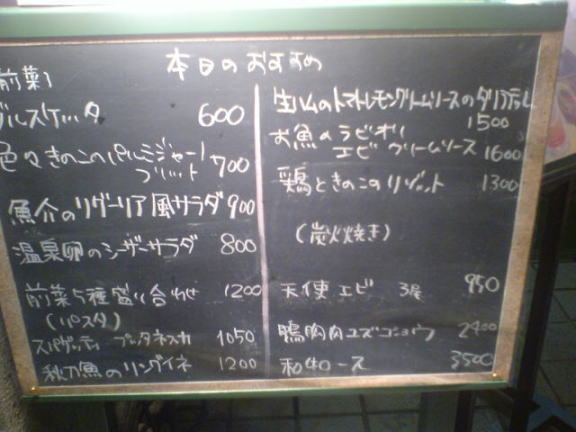 本日のおすすめ
前菜
ブルスケッタ 600
色々きのこのパルミジャーノ
フリット 700
魚介のリグーリア風サラダ 900
温泉卵のシーザーサラダ 800
前菜5種盛り合わせ 1200
(パスタ)
スパゲッティ プッタネスカ 1050
秋刀魚のリングイネ 1200
生ハムのトマトレモンクリームソースのタリアテッレ
1500
お魚のラビオリ
エビクリームソース 1600
鶏ときのこのリゾット 1300
(炭火焼き)
天使エビ 3尾 950
鴨胸肉ユズコショウ 2400
和牛ロース 3500